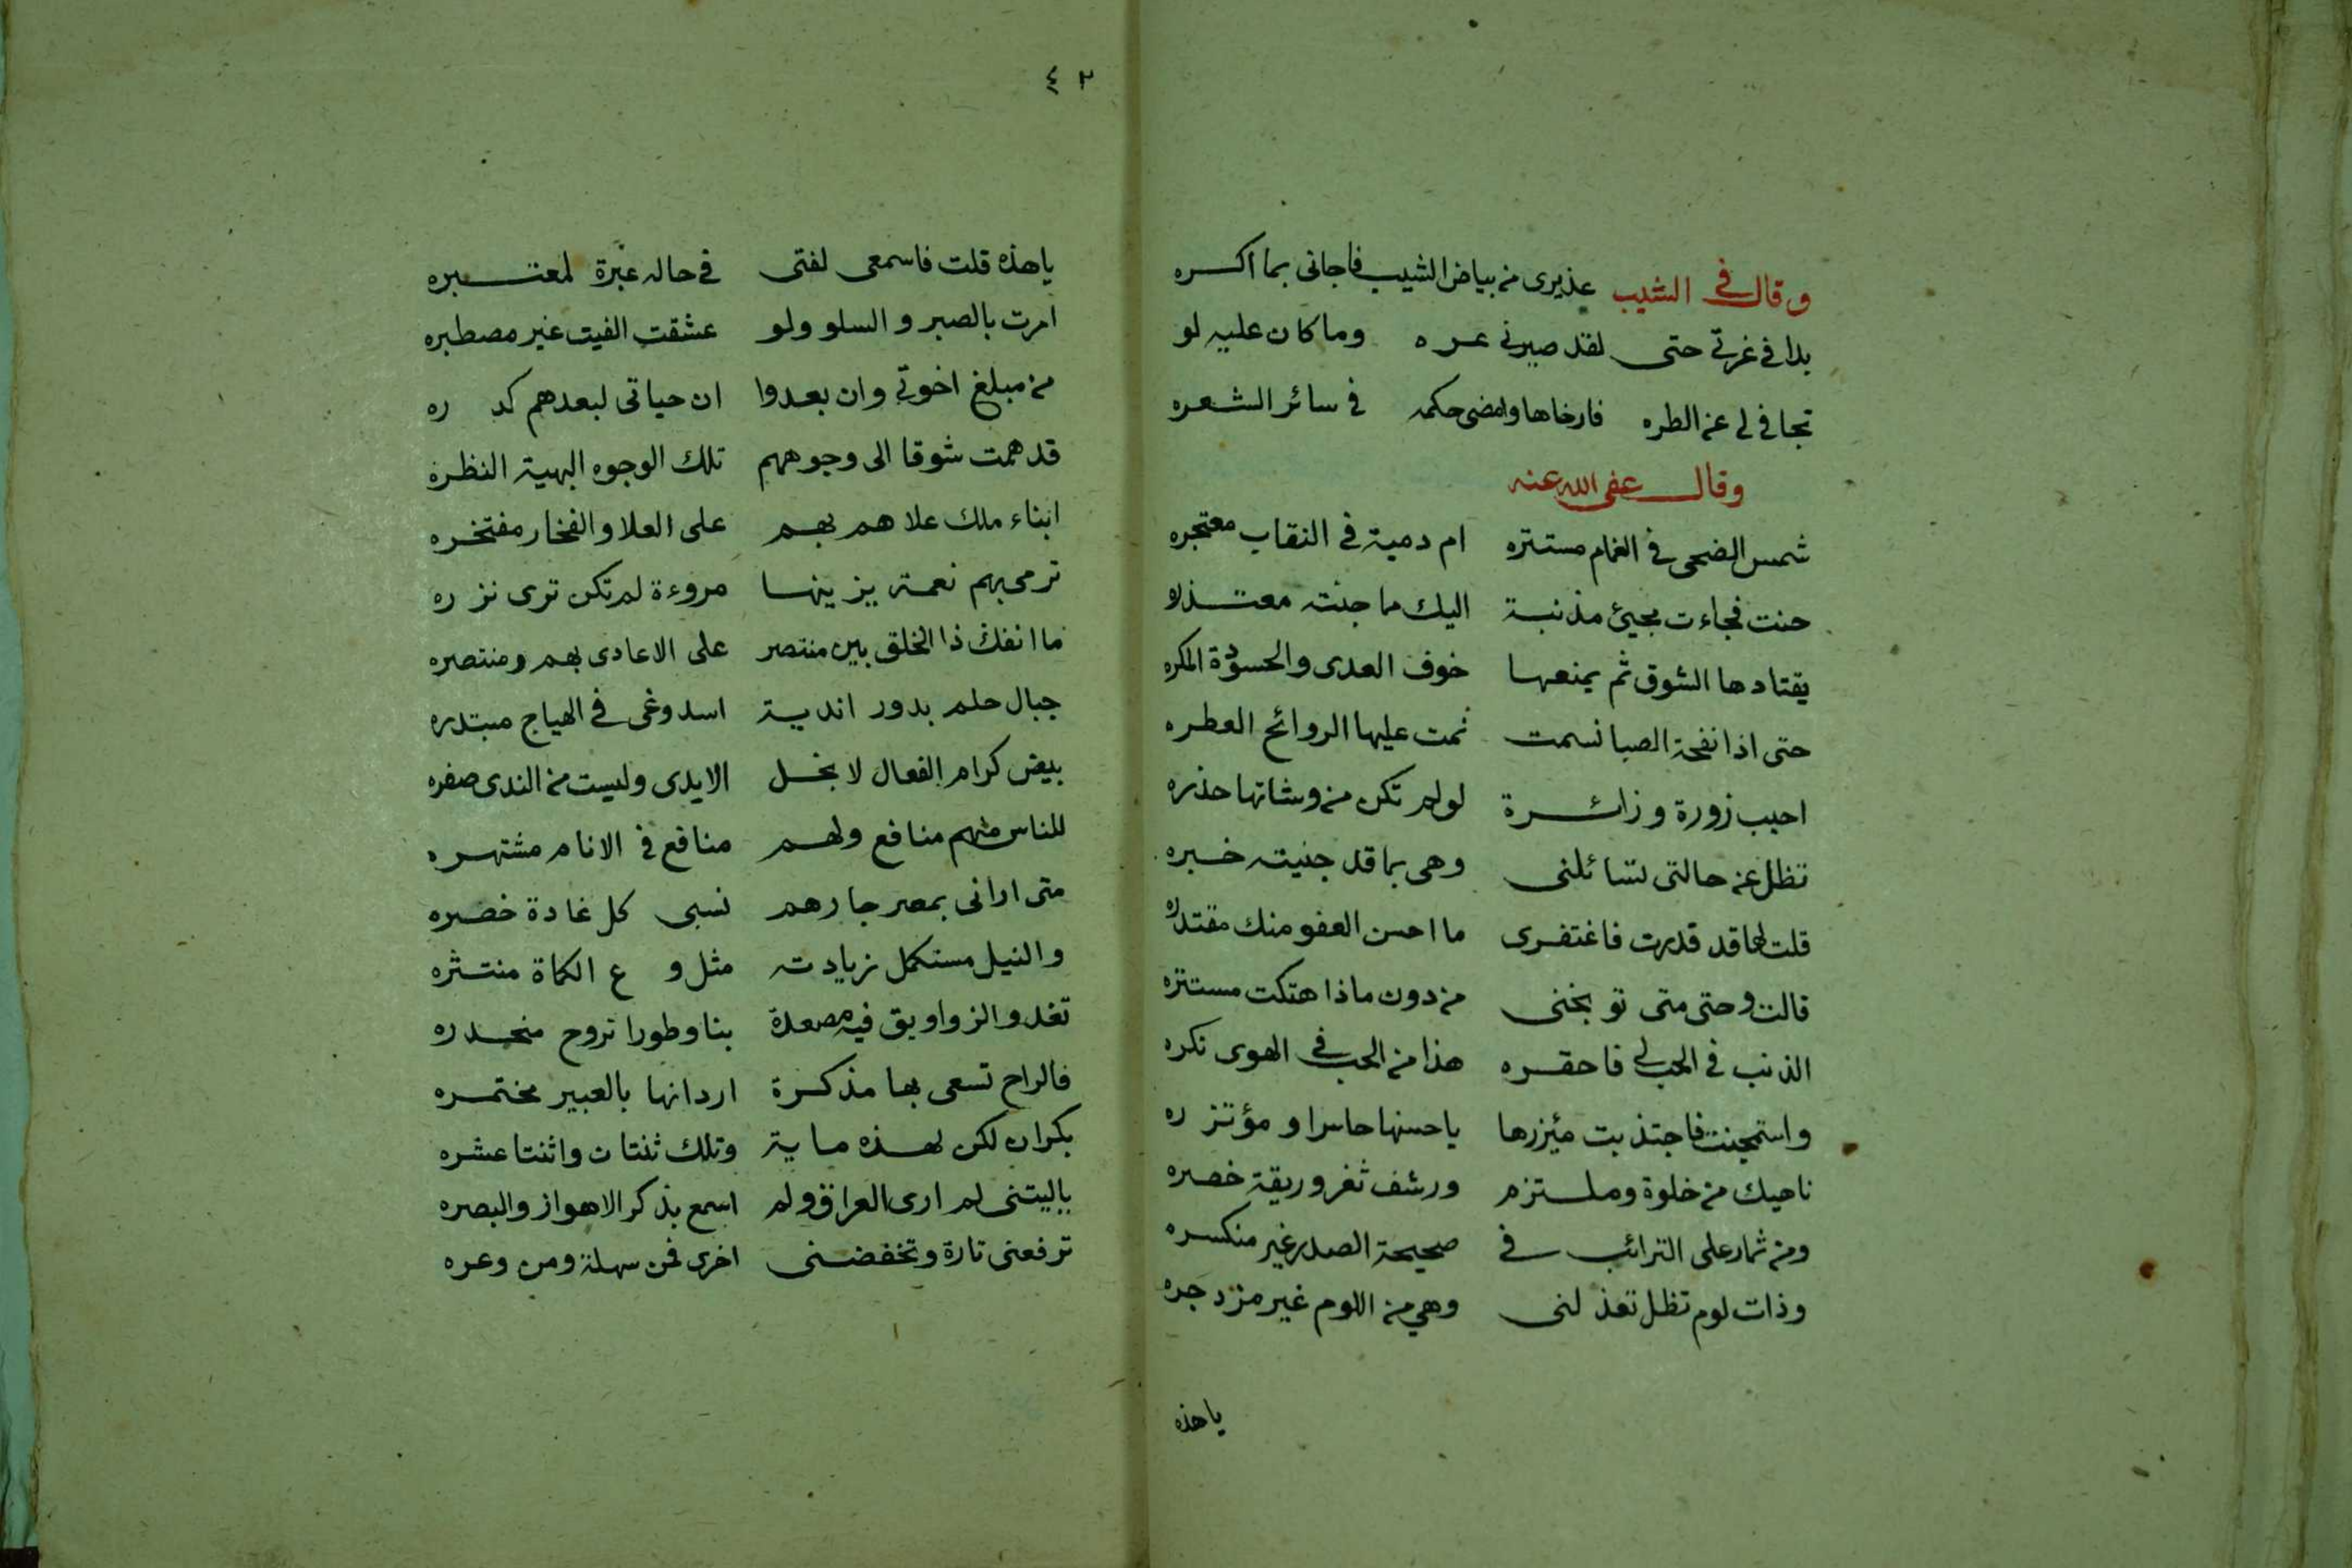 وقال في الشيب عذيرى من بياض الشيب فاجانى بما اكسره
بدا في غرتي حتى لقد صيرني عره وما كان عليه لو
تجافى لى عن الطره فارخاها وامضى حكمه فى سائر الشعره
وقال عفى الله عنه
شمس الضحى فى الغمام مستتره ام دمية فى النقاب معتجره
حنت فجاءت مجيئ مذنبة اليك مما جنته معتذره
يقتادها الشوق ثم يمنعها خوف العدى والحسودة المكره
حتى اذا نفحة الصبا نسمت نمت عليها الروائح العطره
احبب زورة وزائرة لو لم تكن من وشاتها حذره
تظل عن حالتى تسائلنى وهى بما قد جنيته خبره
قلت لها قد قدرت فاغتفرى ما احسن العفو منك مقتدره
قالت وحتى متى توبخنى من دون ماذا هتكت مستتره
الذنب فى الحب لى فاحقره هذا من الحب فى الهوى نكره
واستمجنت فاجتذبت مئزرها ياحسنها حاسرا ومؤتزره
ناهيك من خلوة وملتزم ورشف ثغر وريقة خصره
ومن ثمار على الترائب فى صحيحة الصدر غير منكسره
وذات لوم تظل تعذلنى وهي من اللوم غير مزدجره
ياهذه
٤٢
ياهذه قلت فاسمعى لفتى فى حاله عبرة لمعتبره
امرت بالصبر والسلو ولو عشقت الفيت غير مصطبره
من مبلغ اخوتي وان بعدوا ان حياتى لبعدهم كدره
قد همت شوقا الى وجوههم تلك الوجوه البهية النظرة
ابناء ملك علاهم بهم على العلا والفخار مفتخره
ترمى بهم نعمة يزينها مروءة لم تكن ترى نزره
ما انفك ذا الخلق بين منتصر على الاعادى بهم ومنتصره
جبال حلم بدور اندية اسد وغى فى الهياج مبتدره
بيض كرام الفعال لا بخل الايدى وليست من الندى صفره
للناس منهم منافع ولهم منافع فى الانام مشتهره
متى ارانى بمصر جارهم نسبى كل غادة خضره
والنيل مستكمل زيادته مثل و ع الكماة منتثره
تغدو الزواويق فيه مصعدة بنا وطورا تروح منحدره
فالراح تسعى بها مذكرة اردانها بالعبير مختمره
بكران لكن لهذه ماية وتلك ثنتان واثنتا عشره
ياليتنى لم ارى العراق ولم اسمع بذكر الاهواز والبصره
ترفعنى تارة وتخفضنى اخرى فمن سهلة ومن وعره